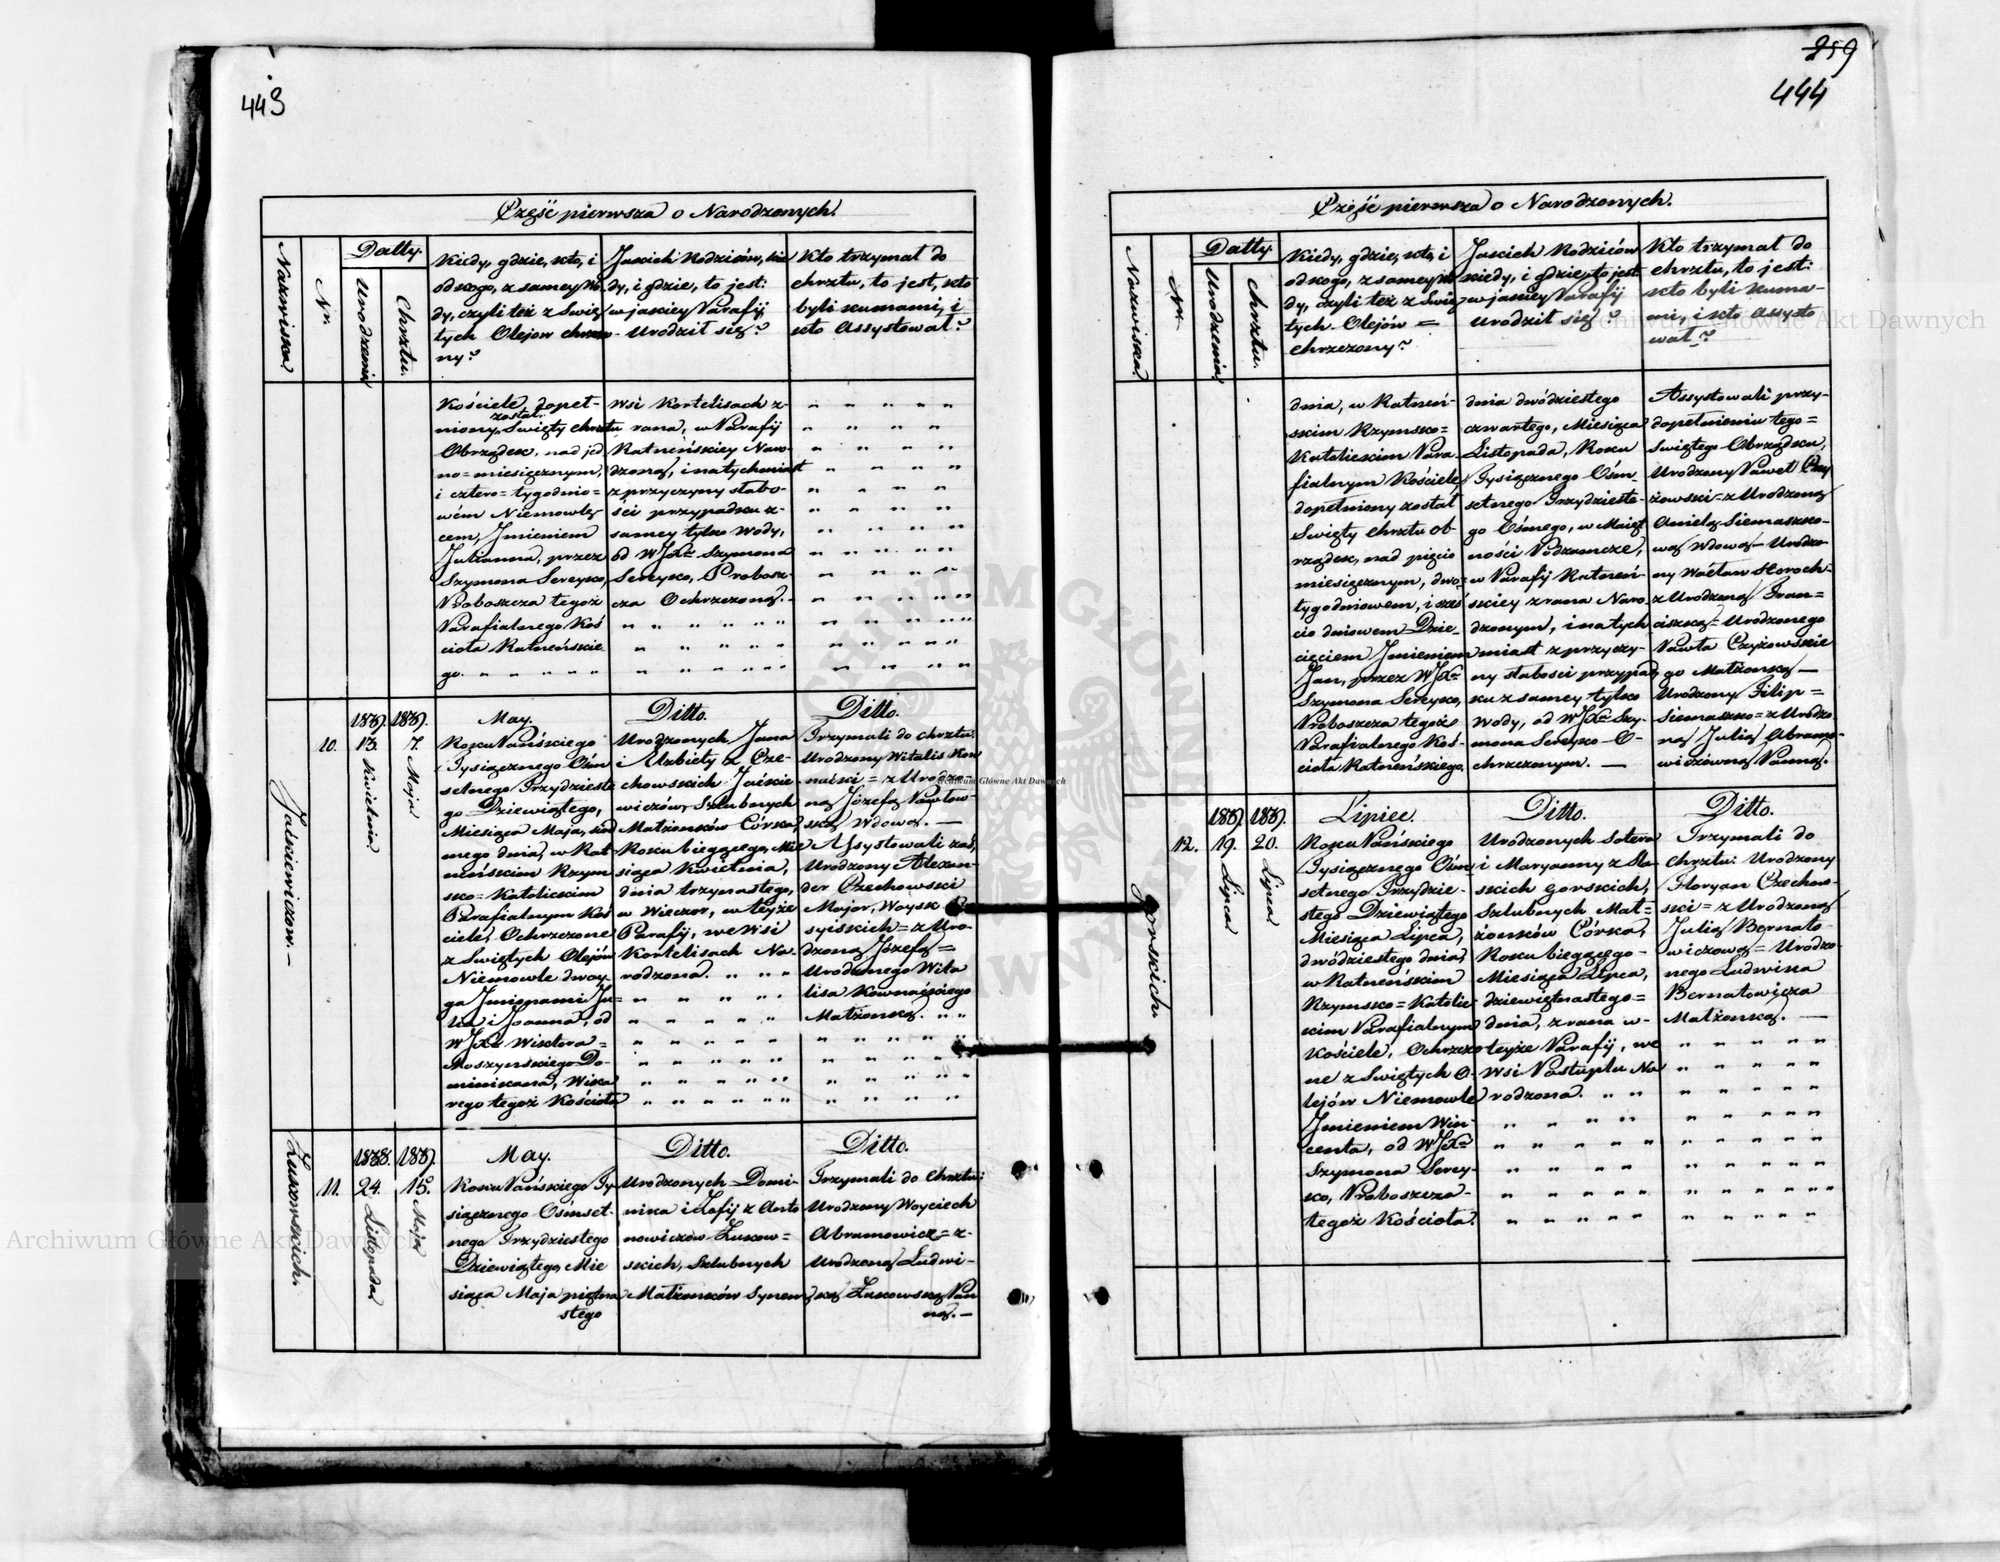 443
Część pierwsza o Narodzonych.
Nazwiska
Nr.
Datty.
Urodzenia
Chrztu.
Kiedy, gdzie, kto, i
od kogo, z samey wo
dy, czyli też z Swię
tych Olejow chrzczo
ny?
Jakich Rodziców, kie
dy, i gdzie, to jest:
w jakiey Parafij,
Urodził się?
Kto trzymał do
chrztu, to jest, kto
byli kumami, i
kto Assystował?
Kościele, dopeł-
został
niony Swięty chrztu
Obrządek, nad jed
no=miesięcznym,
i cztero=tygodnio=
wém Niemowlę
cem, Jmieniem
Julianna, przez
Szymona Sereyko,
Proboszcza tegoż
Parafialnego Koś
cioła Ratneńskie
go. " " " " "
Wsi Kortelisach z-
rana, w Parafij
Ratneńskiey Naro-
dzoną, i natychmiast
z przyczyny słabo-
ści przypadku z-
samey tylko Wody,
od WJXa Szymona
Sereyko, Probosz-
cza Ochrzczoną.-
Jaśkiewiczow.-
10.
1839.
13.
Kwietnia.
1839.
7.
Maja
May.
Roku Pańskiego
Tysiącznego Ośm
setnego Trzydzieste
go Dziewiątego,
Miesiąca Maja, siód
mego dnia, w Rat-
neńskim Rzym
sko=Katolickim
Parafialnym Koś
ciele, Ochrzczone
z Swiętych Olejów
Niemowle dwoy-
ga Jmionami Ju=
lia i Joanna, od
WJXa Wiktora=
Moszyńskiego Do
minikana, Wika
rego tegoż Kościoła
Ditto.
Urodzonych Jana
i Elzbiety z Cze-
chowskich Jaśkie
wiczów Szlubnych
Małżonków Córka,
Roku bieżącego, Mie
siąca Kwietnia,
dnia trzynastego,
w Wieczor, w teyże
Parafij, we Wsi
Kortelisach Na-
rodzona. " " "
Ditto.
Trzymali do chrztu:
Urodzony Witalis Kow
naćki=z Urodzo-
ną Józefą Pawłow-
ską Wdową.—
Assystowali zaś,
Urodzony Alexan-
der Czechowski
Major, Woysk
syiskich=z Uro-
dzoną Józefą=
Urodzonego Wita
lisa Kownaćkiego
Małżonką. " "
Łukowskich.
11.
1838.
24.
Listopada.
1839.
15.
Maja
May.
Roku Pańskiego Ty-
siącznego Ośmset-
nego Trzydziestego
Dziewiątego, Mie
siąca Maja piętna
stego
Ditto.
Urodzonych Domi-
nika i Zofij z Anto
nowiczów Łukow=
skich, Szlubnych
Małżonków Synem,
Ditto.
Trzymali do Chrztu:
Urodzony Woyciech
Abramowicz=z-
Urodzoną Ludwi-
ką Łukowską Pan
ną.—
259
444
Część pierwsza o Narodzonych.
Nazwiska
Nr.
Datty.
Urodzenia
Chrztu.
Kiedy, gdzie, kto, i
od kogo, z samey wo
dy, czyli też z Swię
tych Olejów =
chrzczony?
Jakich Rodziców
kiedy, i gdzie, to jest
w jakiey Parafij
Urodził się?
Kto trzymał do
chrztu, to jest:
kto byli Kuma-
mi, i kto Assysto
wał?
dnia, w Ratneń-
skim Rzymsko=
Katolickim Para
fialnym Kościele,
dopełniony został
Swięty chrztu ob-
rządek, nad pięcio
miesięcznym, dwo=
tygodniowem, i sześ
cio dniowem Dzie-
cięciem Jmieniem
Jan, przez WJXa
Szymona Sereyko,
Proboszcza tegoże
Parafialnego Koś-
cioła Ratneńskiego.
dnia dwódziestego
czwartego, Miesiąca
Listopada, Roku
Tysiącznego Ośm-
setnego Trzydzieste-
go Ósmego, w Maięt
ności Podzamcze,
w Parafij Ratneń-
skiey z rana Naro-
dzonym, i natych
miast z przyczy-
ny słabości przypad
ku z samey tylko
Wody, od WJXa Szy-
mona Sereyko O-
chrzczonym. —
Assystowali przy-
dopełnieniu tego=
Swiętego Obrządku,
Urodzony Paweł Czy
żowski=z Urodzoną
Anielą Siemaszko-
wą Wdową—Urodzo
ny Wacław Horoch-
z Urodzoną Fran=
ciszką=Urodzonego
Pawła Czyżowskie
go Małżonką—
Urodzony Filip=
Siemaszko=z Urodzo
ną Julią Abramo-
wiczówną Panną.
Gorskich.
12.
1839.
19.
Lipca
1839.
20.
Lipca
Lipiec.
Roku Pańskiego
Tysiącznego Ośm
setnego Trzydzie-
stego Dziewiątego
Miesiąca Lipca,
dwódziestego dnia,
w Ratneńskim
Rzymsko=Katolic-
kim Parafialnym
Kościele, Ochrzczo
ne z Swiętych O-
lejów Niemowle
Jmieniem Win-
centa, od WJXa
Szymona Serey-
ko, Proboszcza-
tegoż Kościoła.
Ditto.
Urodzonych Sotera
i Maryanny z Ila-
skich Gorskich,
Szlubnych Mał=
żonków Córka,
Roku bieżącego-
Miesiąca Lipca,
dziewiętnastego=
dnia, z rana w-
teyże Parafij, we
Wsi Postuplu Na
rodzona. " "
Ditto.
Trzymali do
chrztu: Urodzony
Floryan Czechow-
ski=z Urodzoną
Julią Bernato-
wiczową=Urodzo-
nego Ludwika
Bernatowicza
Małżonką.—